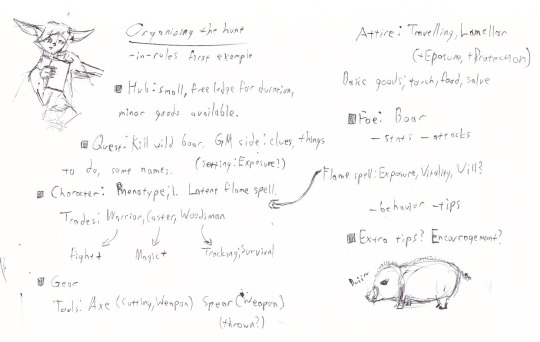 Organizing the hunt
-in-rules first example
Hub: small, free lodge for duration,
minor goods available.
Quest: Kill wild boar. GM side: clues, things
to do, some names. (setting: Exposure?)
Character: Phenotype; 1. Latent flame spell.
Trades: Warrior, Caster, Woodsman
Fight+ Magic+ Tracking; Survival
Gear
Tools: Axe (Cutting, Weapon) Spear (Weapon)
(thrown?)
Attire: Travelling, Lamellar
(+Exposure, +Protection)
Basic goods; torch, food, salve
Foe: Boar
-stats -attacks
Flame spell: Exposure, Vitality, Will?
-behavior -tips
Extra tips? Encouragement?